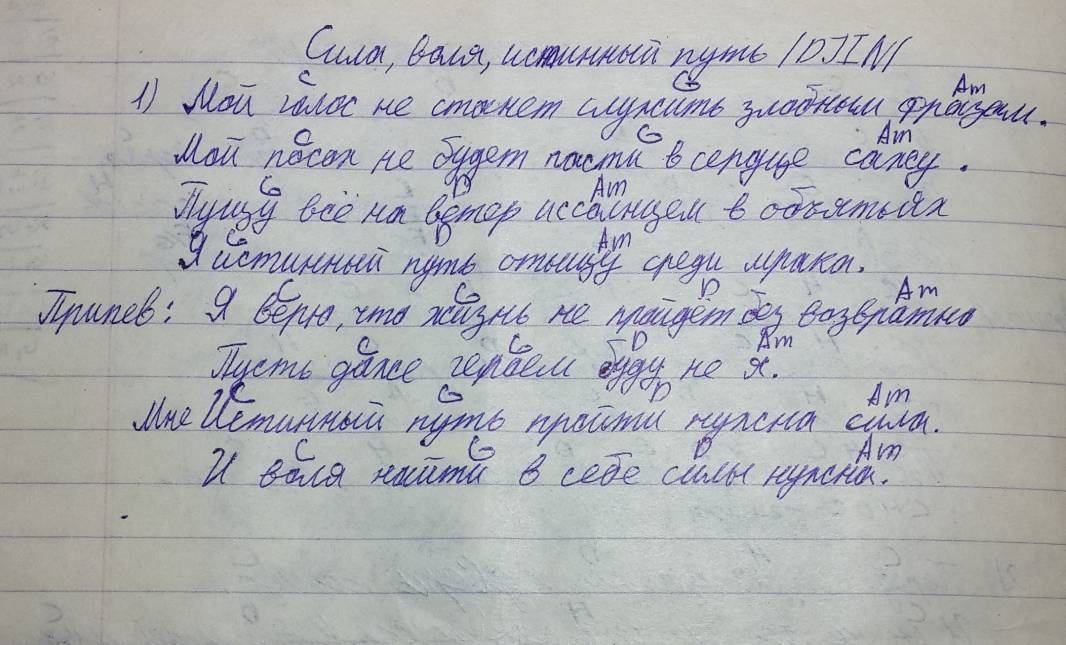 Сила, воля, истинный путь /DJIN/
C G Am
1) Мой голос не станет служить злобным фразам.
C G Am
Мой посох не будет пасти в сердце сажу.
G D Am
Пущу всё на ветер и ссолнцем в объятьях
G D Am
Я истинный путь отыщу среди мрака.
C G D Am
Припев: Я верю, что жизнь не пройдёт без возвратно
C G D Am
Пусть даже героем буду не я.
C G D Am
Мне Истинный путь пройти нужна сила.
C G D Am
И воля найти в себе силы нужна.